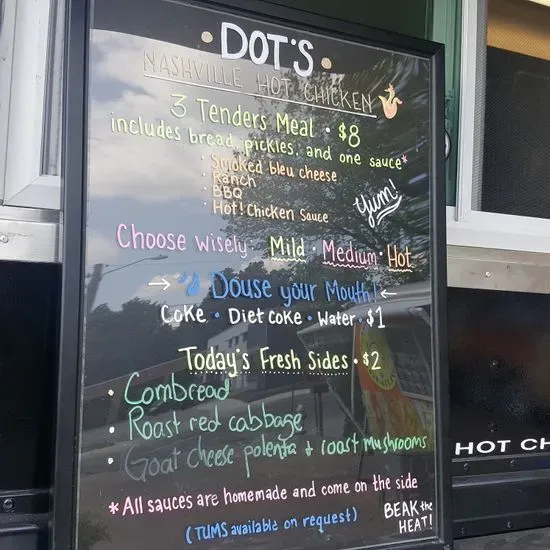 • DOT'S •
NASHVILLE HOT CHICKEN
3 Tenders Meal • $8
includes bread, pickles, and one sauce*
• Smoked bleu cheese
• Ranch
• BBQ
• Hot! Chicken Sauce
Yum!
Choose wisely: Mild • Medium • Hot
→ Douse your Mouth! ←
Coke • Diet coke • Water • $1
Today's Fresh Sides • $2
• Cornbread
• Roast red cabbage
• Goat cheese polenta + roast mushrooms
*All sauces are homemade and come on the side
(TUMS available on request)
BEAK the
HEAT!
HOT CH